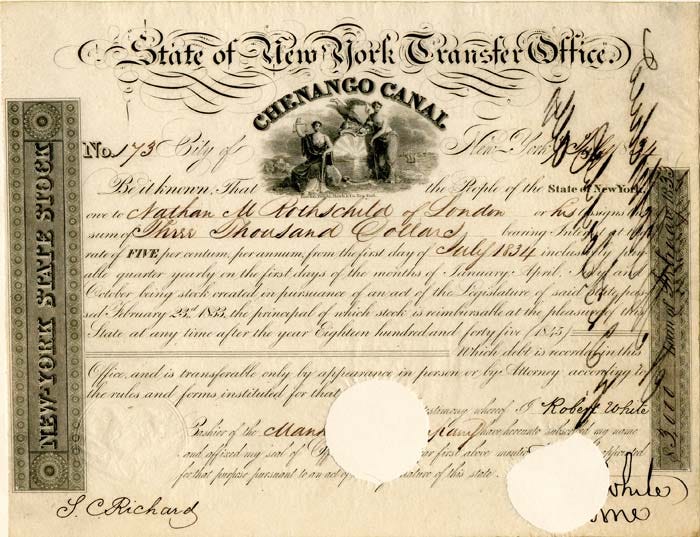 State of New York Transfer Office.
CHENANGO CANAL
No. 173 City of New York July 34
Be it known, That the People of the State of New York,
owe to Nathan M Rothschild of London or his Assigns the
sum of Three Thousand Dollars bearing Interest at the
rate of FIVE per centum, per annum, from the first day of July 1834 inclusively, pay-
able quarter yearly on the first days of the months of January, April, July and
October being stock created in pursuance of an act of the Legislature of said State pas-
sed February 23d 1833, the principal of which stock is reimbursable at the pleasure of this
State at any time after the year Eighteen hundred and forty five (1845)
Which debt is recorded in this
Office, and is transferable only by appearance in person or by Attorney according to
the rules and forms instituted for that
testimony whereof I Robert White
Cashier of the Man pany have hereunto subscribed my name
and affixed my seal of Off ear first above mentio appointed
for that purpose pursuant to an act of ature of this state.
White
S. C. Richard
NEW-YORK STATE STOCK